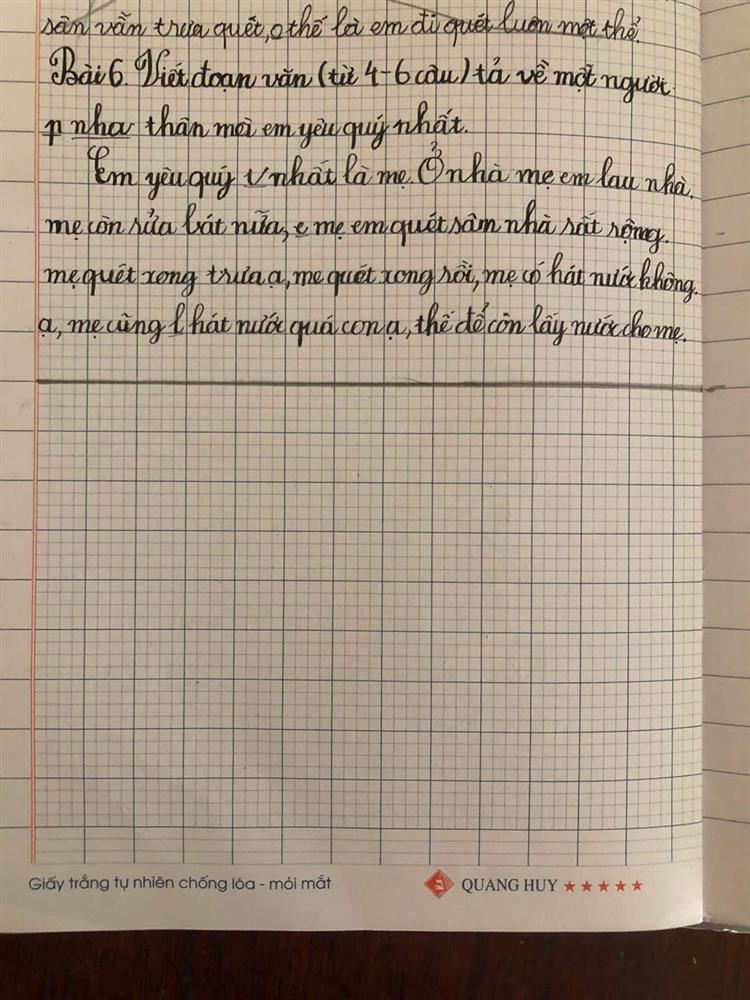 sân vẫn trưa quét, thế là em đi quét luôn một thể.
Bài 6. Viết đoạn văn (từ 4-6 câu) tả về một người
nha thân mà em yêu quý nhất.
Em yêu quý nhất là mẹ. Ở nhà mẹ em lau nhà.
mẹ còn sửa bát nữa, e mẹ em quét sâm nhà sất rộng.
mẹ quét xong trưa ạ, mẹ quét xong rồi, mẹ có hát nước không.
ạ, mẹ cũng hát nước quá con ạ, thế để côn lấy nước cho mẹ.
Giấy trắng tự nhiên chống lóa - mỏi mắt
QUANG HUY ★★★★★